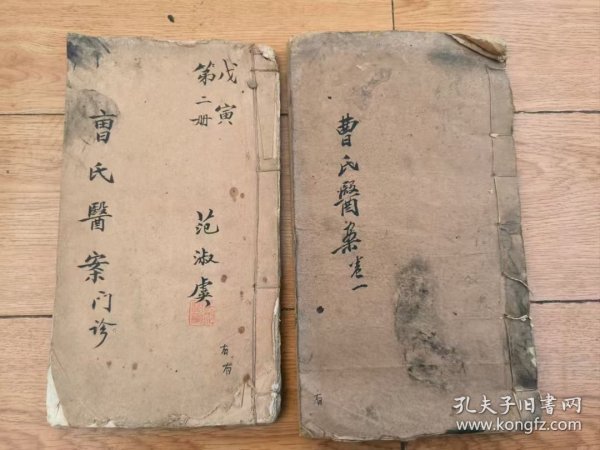 戊寅
第二册
曹氏醫案门诊
范淑虞
有有
曹氏醫案卷一
有
孔夫子旧书网
www.kongfz.com